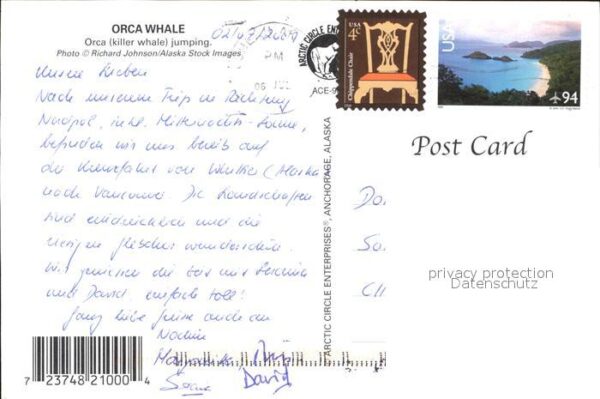 ORCA WHALE
Orca (killer whale) jumping.
Photo © Richard Johnson/Alaska Stock Images
PM
06 JUL
ARCTIC CIRCLE
ACE-9
USA
4c
Chippendale Chair
USA
94
Post Card
Unsere Lieben
Nach unserem Trip in Richtung
Nordpol, inkl. Mitternachts-Sonne,
befinden wir uns bereits auf
der Kreuzfahrt von Whittier (Alaska
nach Vancouver. Die Landschaften
sind eindrücklich und die
riesigen Gletscher wunderschön.
Wir geniessen die Zeit mit
und David, einfach toll!
Ganz liebe Grüsse auch an
Nadine
David
ARCTIC CIRCLE ENTERPRISES®, ANCHORAGE, ALASKA
privacy protection
Datenschutz
7 23748 21000 4